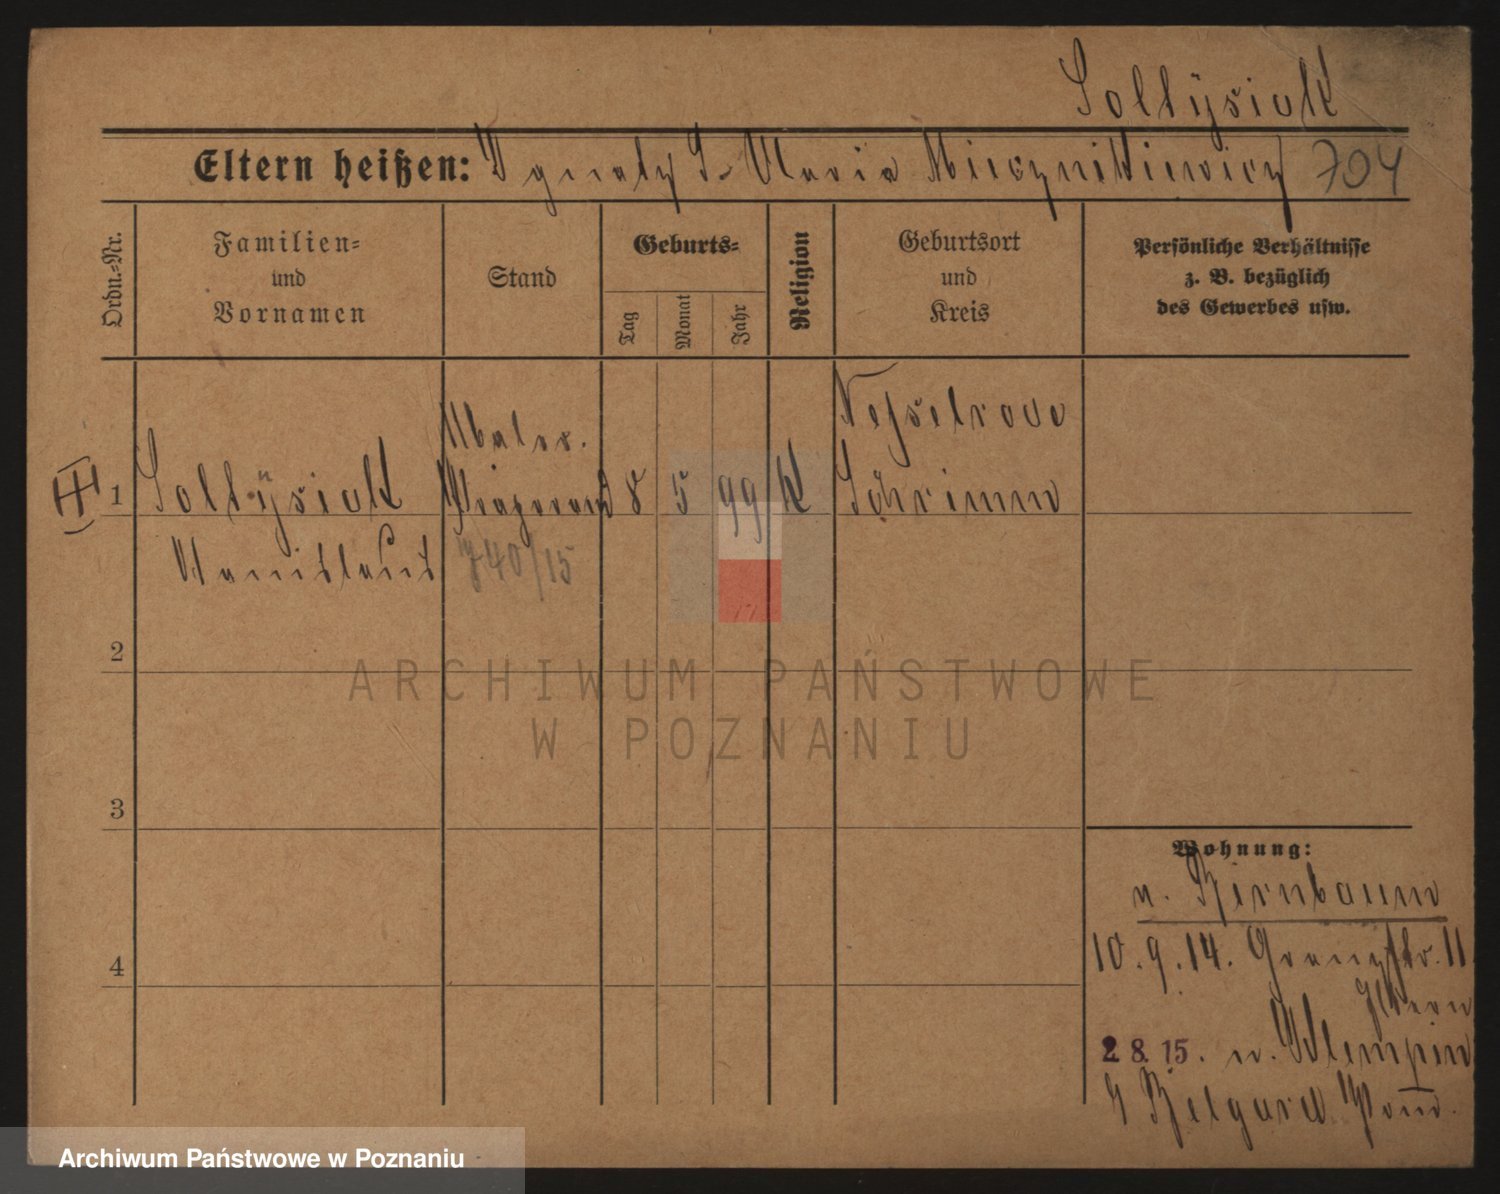 Soltysiak
Eltern heißen: Ignatz S. Maria Miecznikiewicz 704
Ordn.-Nr.
Familien-
und
Vornamen
Stand
Geburts-
Tag
Monat
Jahr
Religion
Geburtsort
und
Kreis
Persönliche Verhältnisse
z. B. bezüglich
des Gewerbes usw.
Nesselrode
Maler.
1 Soltÿsiak 8 5 99 K Schrimm
Stanislaus 740/15
2
ARCHIWUM PAŃSTWOWE
W POZNANIU
3
Wohnung:
n. Birnbaum
4
10.9.14. Grenzstr. 11
2.8.15. n.
Belgard Pom.
Archiwum Państwowe w Poznaniu